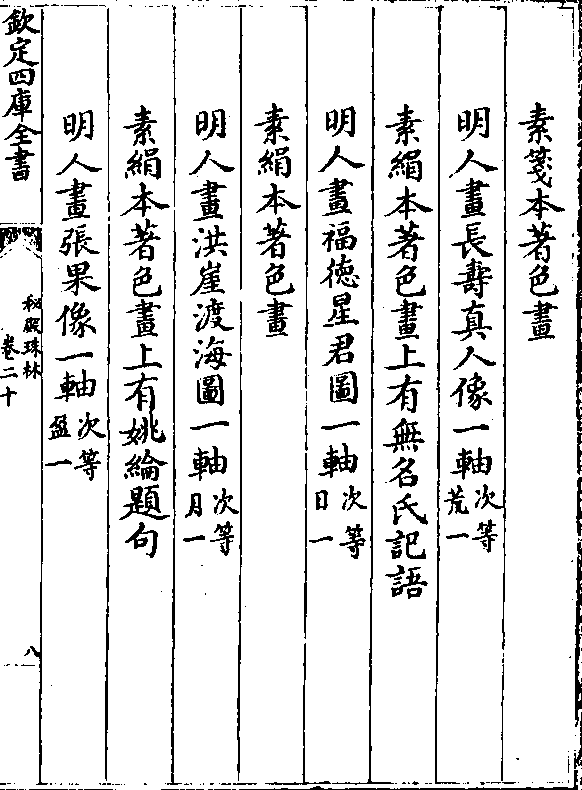 素箋本著色畫
明人畫長壽真人像一軸次等荒一
素絹本著色畫上有無名氏記語
明人畫福德星君圖一軸次等日一
素絹本著色畫
明人畫洪崖渡海圖一軸次等月一
素絹本著色畫上有姚綸題句
明人畫張果像一軸次等盈一
欽定四庫全書
秘殿珠林
卷二十
八